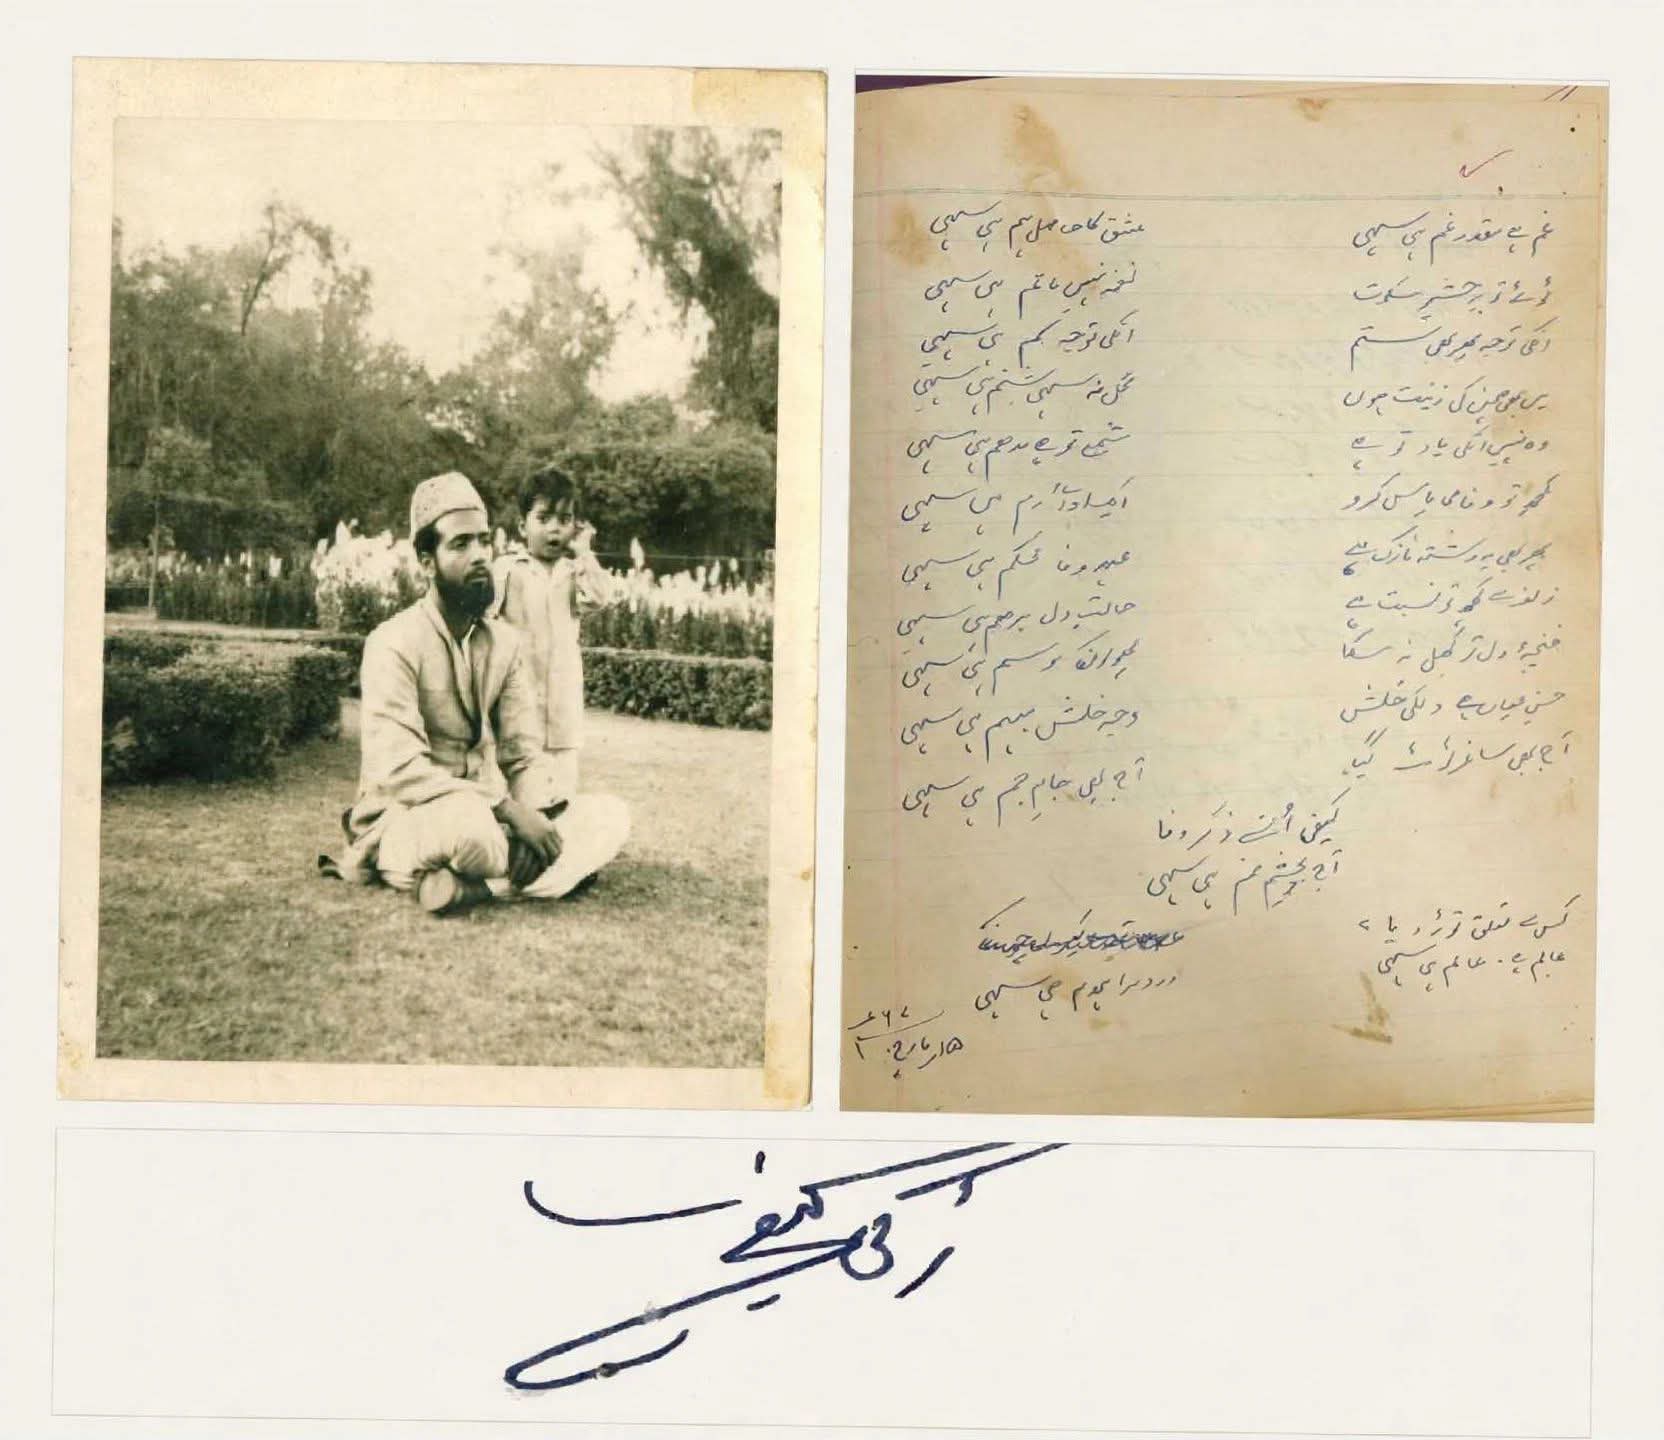 غم ہے مقدر غم ہی سہی عشق کا حاصل ہم ہی سہی
ٹوٹے تو یہ سکوت نغمہ نہیں ماتم ہی سہی
انکی توجہ پھر بھی ستم انکی توجہ کم ہی سہی
میں بھی چمن کی زینت ہوں گل نہ سہی شبنم ہی سہی
وہ نہیں انکی یاد تو ہے شمع تو ہے مدھم ہی سہی
کچھ تو وفا کا پاس کرو ہی سہی
پھر بھی یہ رشتہ نازک ہے عہد وفا محکم ہی سہی
زلف سے کچھ تو نسبت ہے حالتِ دل برہم ہی سہی
غنچۂ دل تو کھل نہ سکا موسم ہی سہی
حسن عیاں ہے دل کی خلش وجہِ خلش مبہم ہی سہی
آج بھی ساغر ٹوٹ گیا آج بھی جامِ جم ہی سہی
کیفی اُن سے ذکر وفا
آج بچشمِ نم ہی سہی
کس سے تعلق توڑ دیا
عالم ہے۔ عالم ہی سہی درد مرا پیہم ہی سہی
۱۵ مارچ ۶۷ء
زکی کیفی